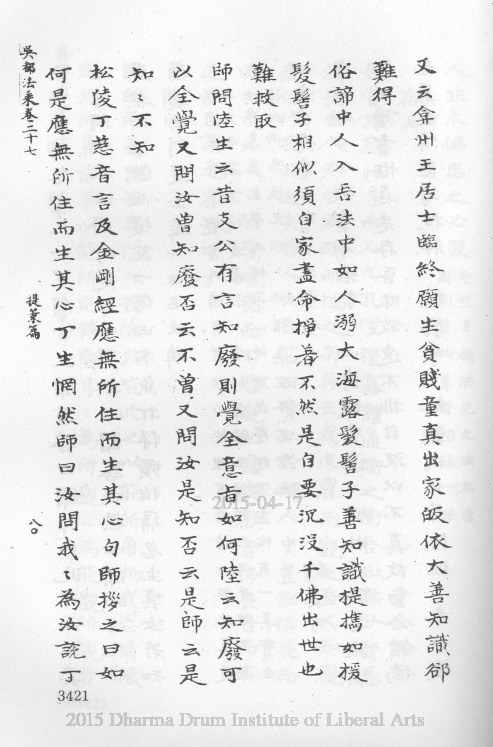 又云弇州王居士臨終願生貧賤童真出家皈依大善知識卻
難得
俗諦中人入吾法中如溺大海露髮髻子善知識提攜如援
髮髻子相似須自家盡命掙著不然是自要沉沒千佛出世也
難救取
師問陸生云昔支公有言知廢則覺全意旨如何陸云知廢可
以全覺又問汝曾知廢否云不曾又問汝是知否云是師云是
知、不知
松陵丁慈音言及金剛經應無所住而生其心句師拶之曰如
何是應無所住而生其心丁生惘然師曰汝問我、為汝說丁
吳都法乘卷二十七
提策篇
八〇
3421
2015-04-17
2015 Dharma Drum Institute of Liberal Arts